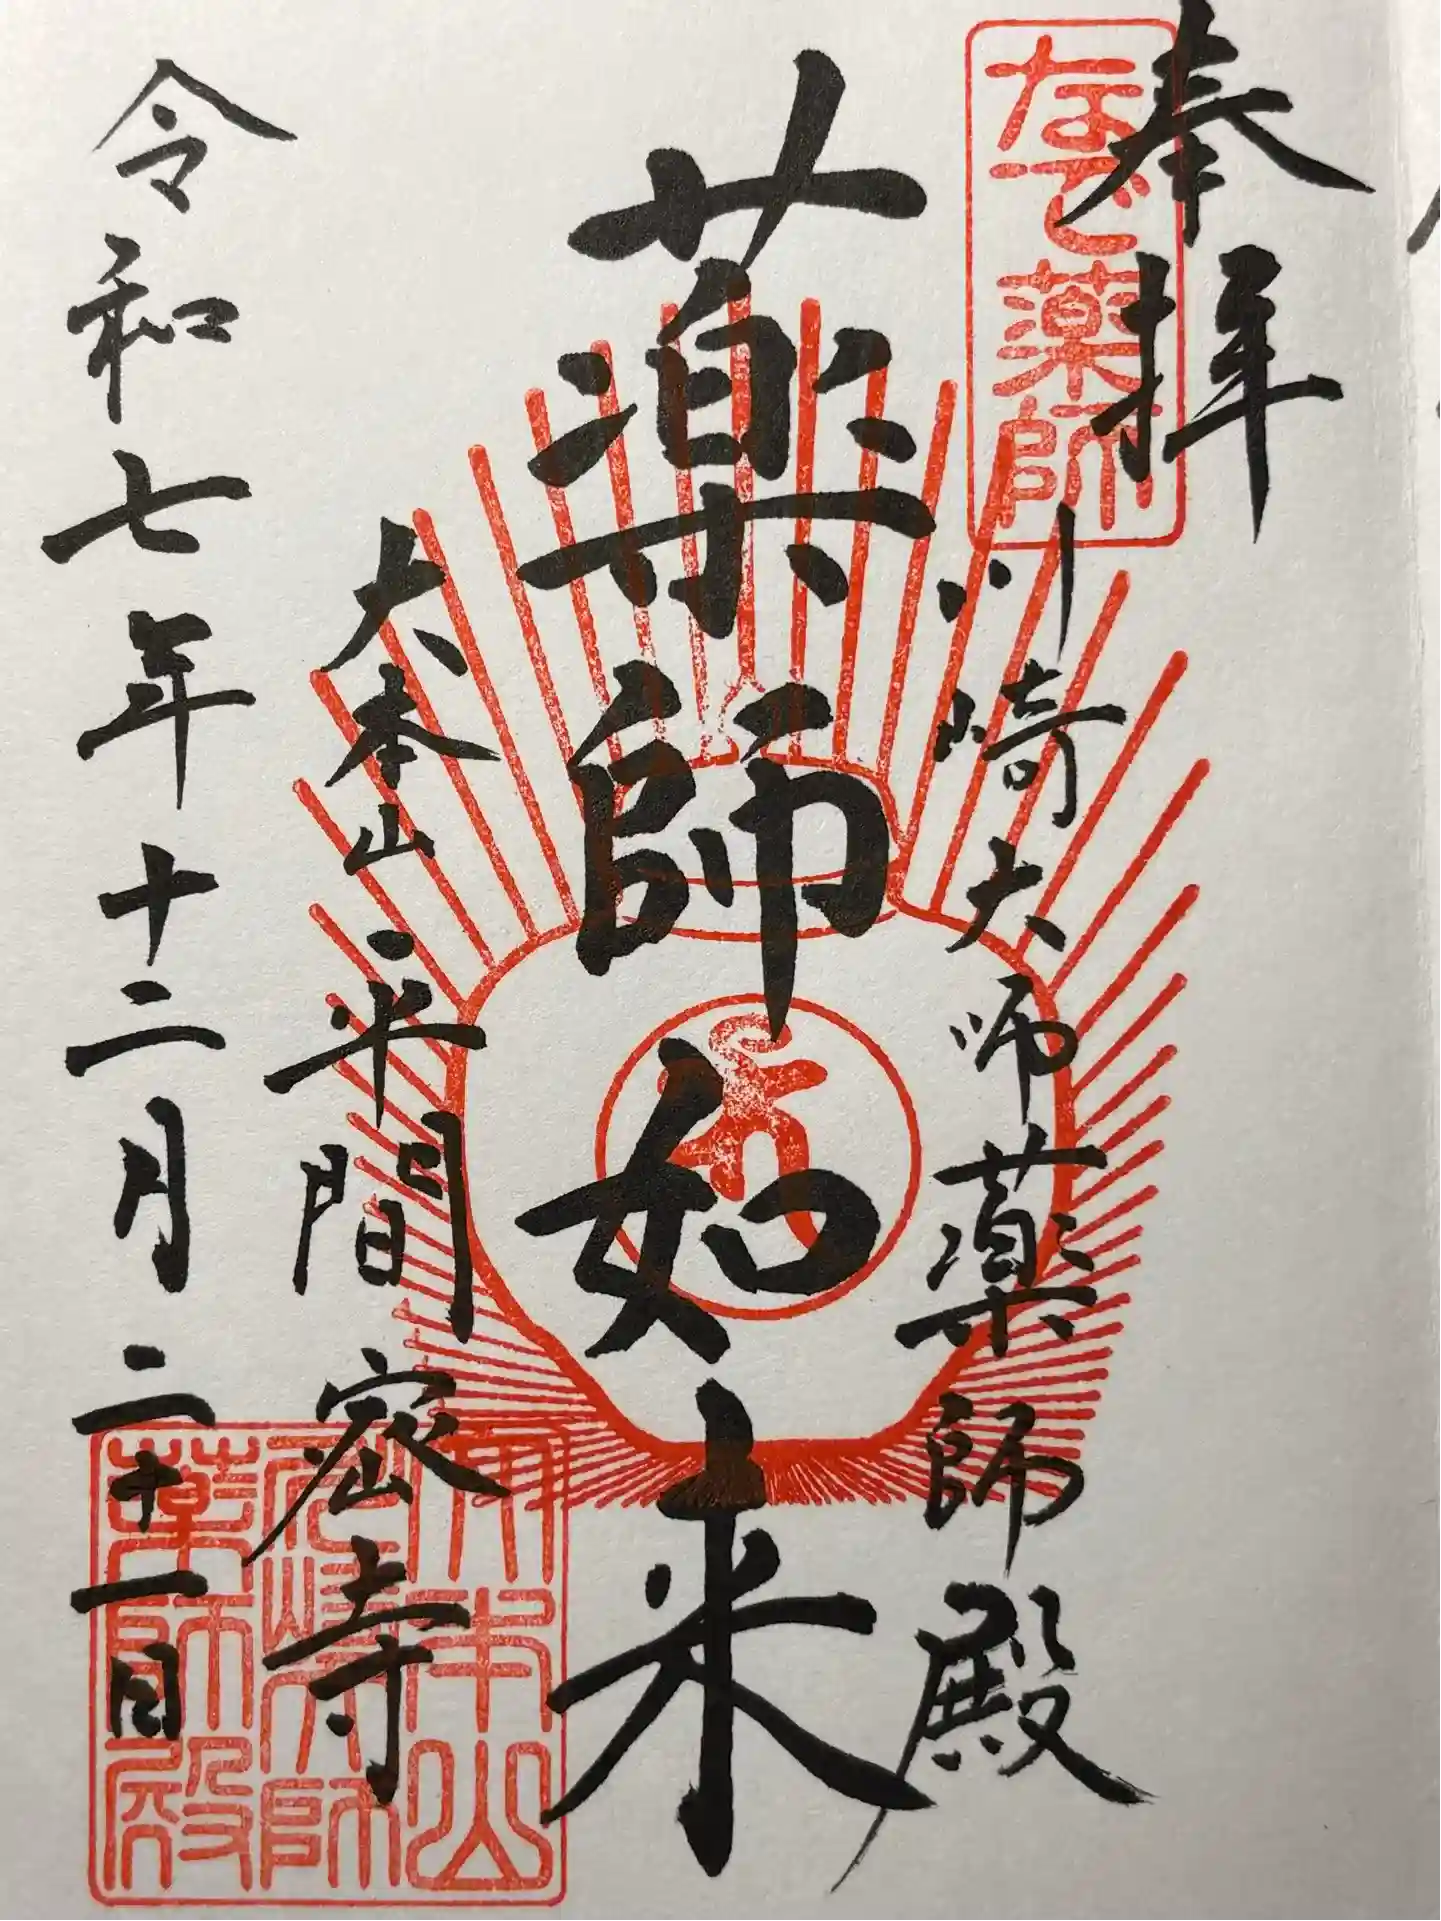 奉拝
なで薬師
川崎大师薬師殿
薬師如来
大本山 平間密寺
令和七年十二月二十一日
大本山
川崎大師
薬師殿